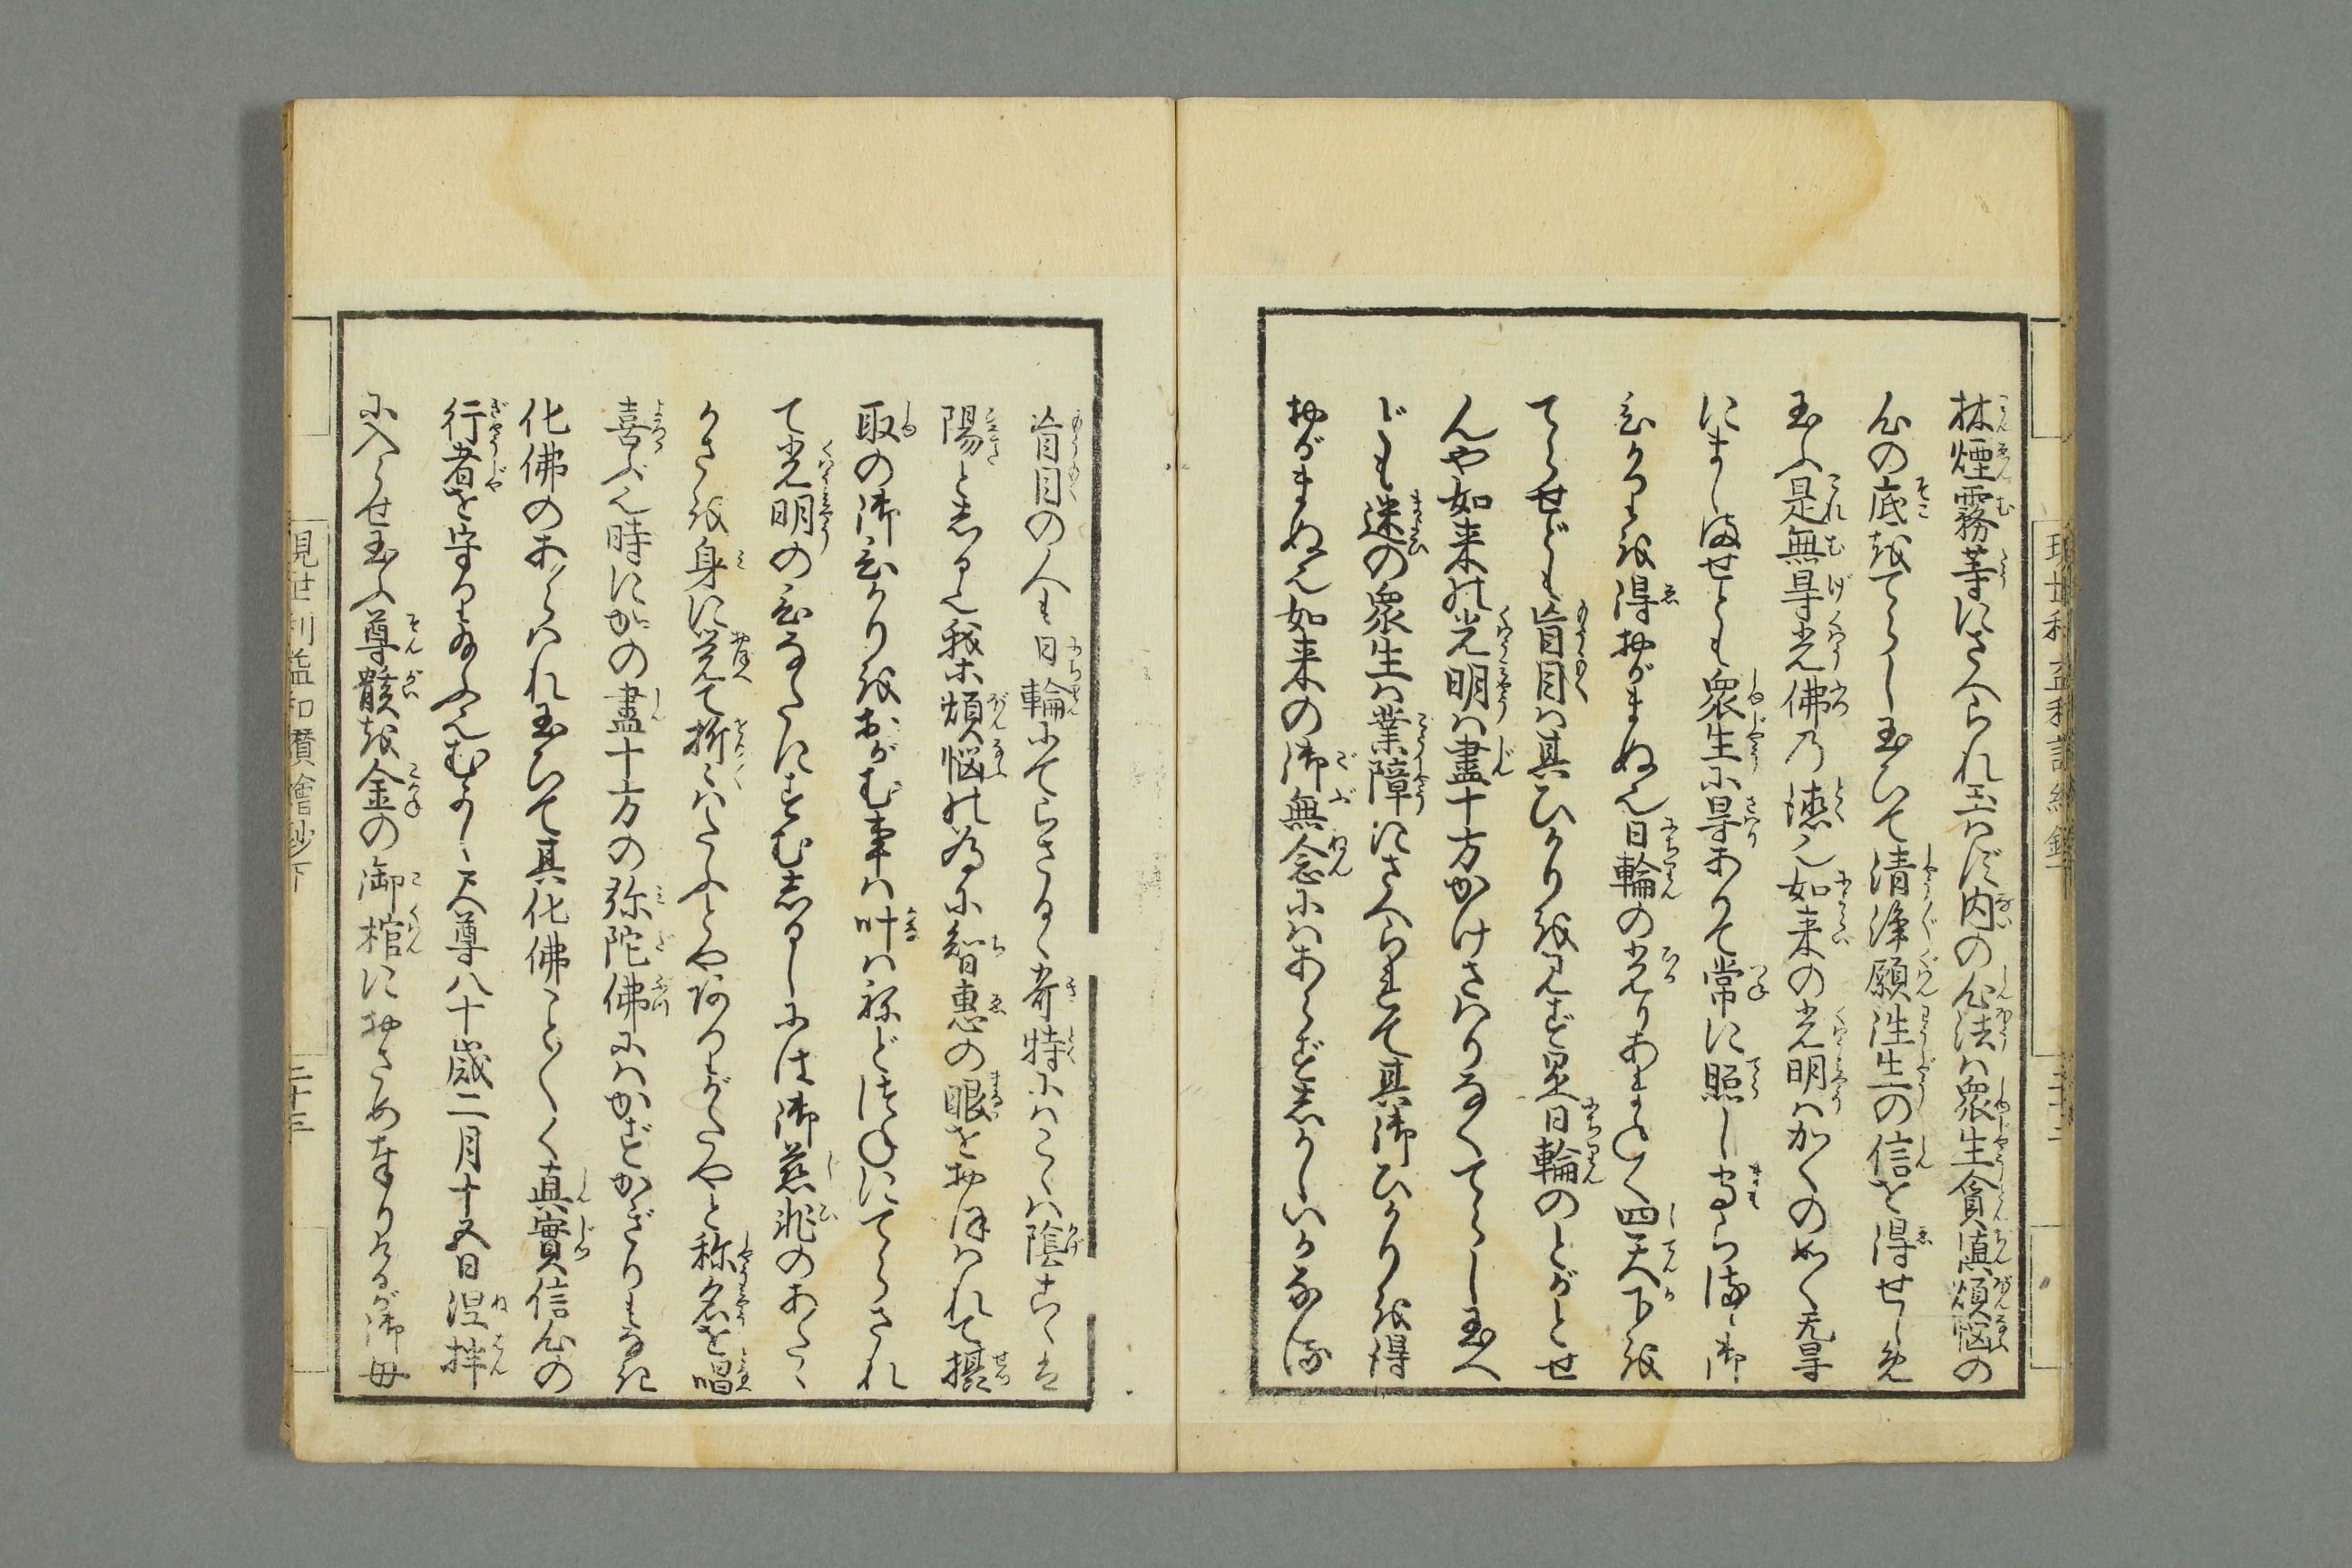 林煙霧等にさへられ玉はず内の心法は衆生貪瞋煩悩の
心の底をてらし玉ひて清浄願往生の信を得せしめ
玉ふ是無㝵光佛乃徳也如来の光明はかくの如く无㝵
にましませとも衆生に㝵ありて常に照し守らせ御
ひかりを得おがまぬ也日輪の光りあまねく四天下を
てらせども盲目は其ひかりを見ず是日輪のとがとせ
んや如来の光明は盡十方かけさはりなくてらし玉へ
ども迷の衆生は業障にさへられて其御ひかりを得
おがまぬ也如来の御無念にはあらずしかしいかなる
盲目の人も日輪にてらさるゝ奇特にはこゝは陰こゝは
陽としる也我等煩悩の為に智惠の眼をおほはれて摂
取の御ひかりをおがむ事は叶はねどつねにてらされ
て光明のひなたにすむしるしには御慈悲のあたゝ
かさを身に覚て折々はたふとやありがたやと称名を唱
喜ぶ也時にかの盡十方の弥陀佛にはかずかぎりもなき
化佛のあらはれ玉ひて其化佛ことごとく真實信心の
行者を守りまふ也むかし大尊八十歳二月十五日涅槃
に入らせ玉ふ尊骸を金の御棺におさめ奉りけるが御母
現世利益和讃繪鈔下
二十三